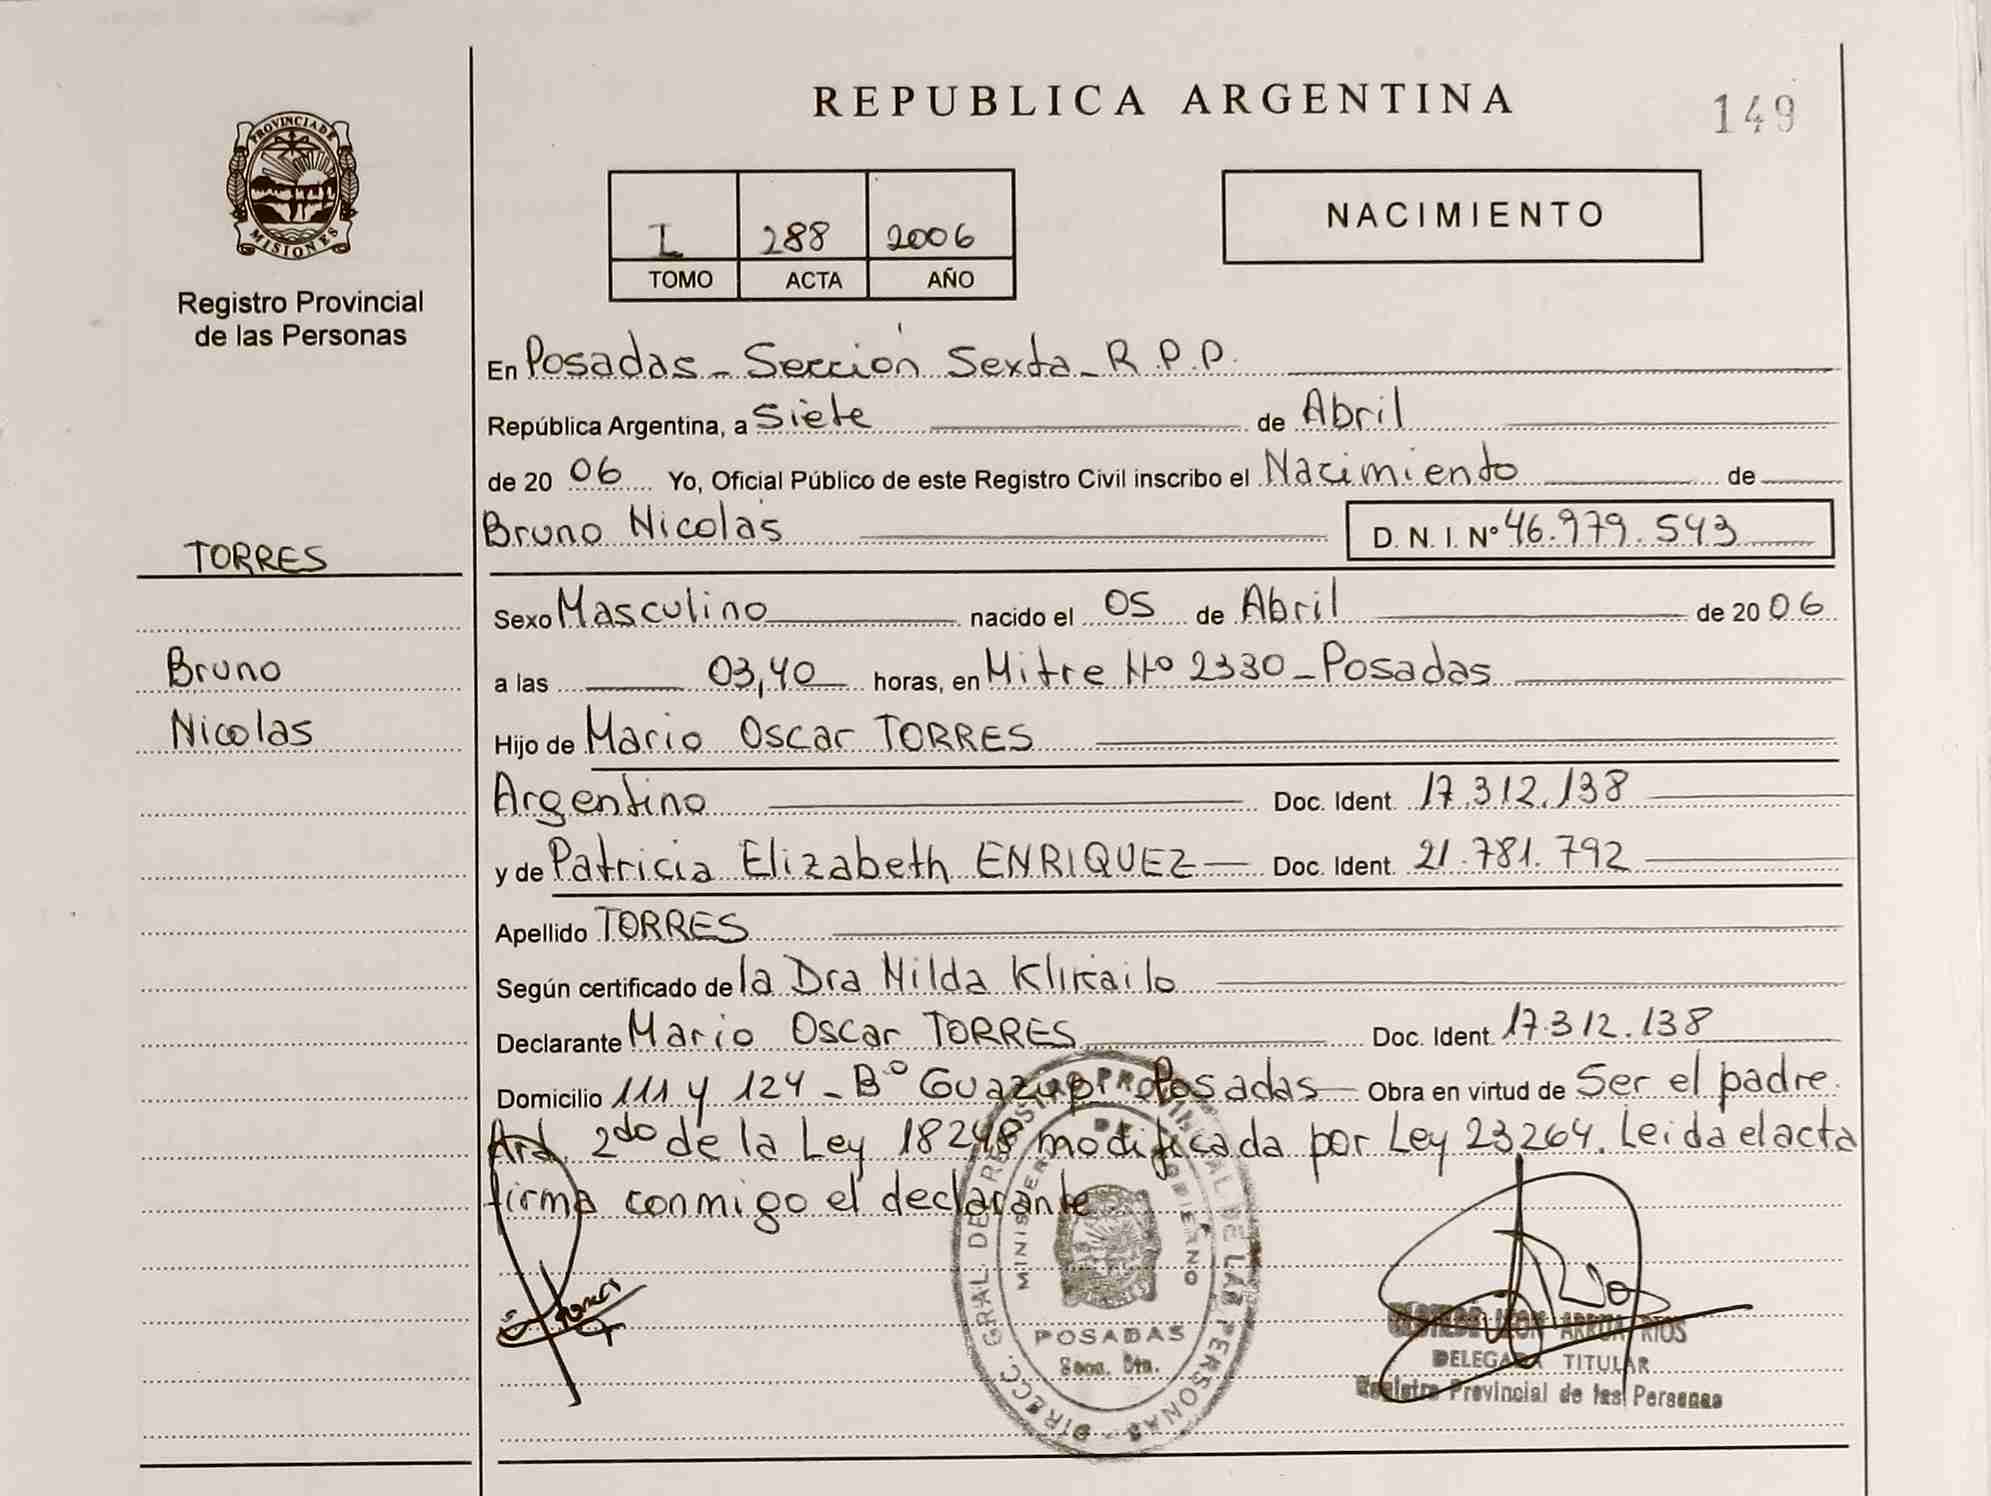 PROVINCIA DE
MISIONES
Registro Provincial
de las Personas
TORRES
Bruno
Nicolas
REPUBLICA ARGENTINA
149
I 288 2006
TOMO ACTA AÑO
NACIMIENTO
En Posadas - Sección Sexta - R.P.P.
República Argentina, a Siete de Abril
de 2006 Yo, Oficial Público de este Registro Civil inscribo el Nacimiento de
Bruno Nicolas D. N. I. Nº 46.979.543
Sexo Masculino nacido el 05 de Abril de 2006
a las 03,40 horas, en Mitre Nº 2330 - Posadas
Hijo de Mario Oscar TORRES
Argentino Doc. Ident. 17.312.138
y de Patricia Elizabeth ENRIQUEZ Doc. Ident. 21.781.792
Apellido TORRES
Según certificado de la Dra Nilda
Declarante Mario Oscar TORRES Doc. Ident. 17.312.138
Domicilio 111 y 124 - Bº Guazupi - Posadas Obra en virtud de Ser el padre.
Art. 2do de la Ley 18248 modificada por Ley 23264. Leida el acta
firma conmigo el declarante
DIRECC. GRAL. DE REGISTRO PROVINCIAL DE LAS PERSONAS
MINISTERIO DE GOBIERNO
POSADAS
Secc. 6ta.
LEON ARRUA RIOS
DELEGADA TITULAR
Registro Provincial de las Personas